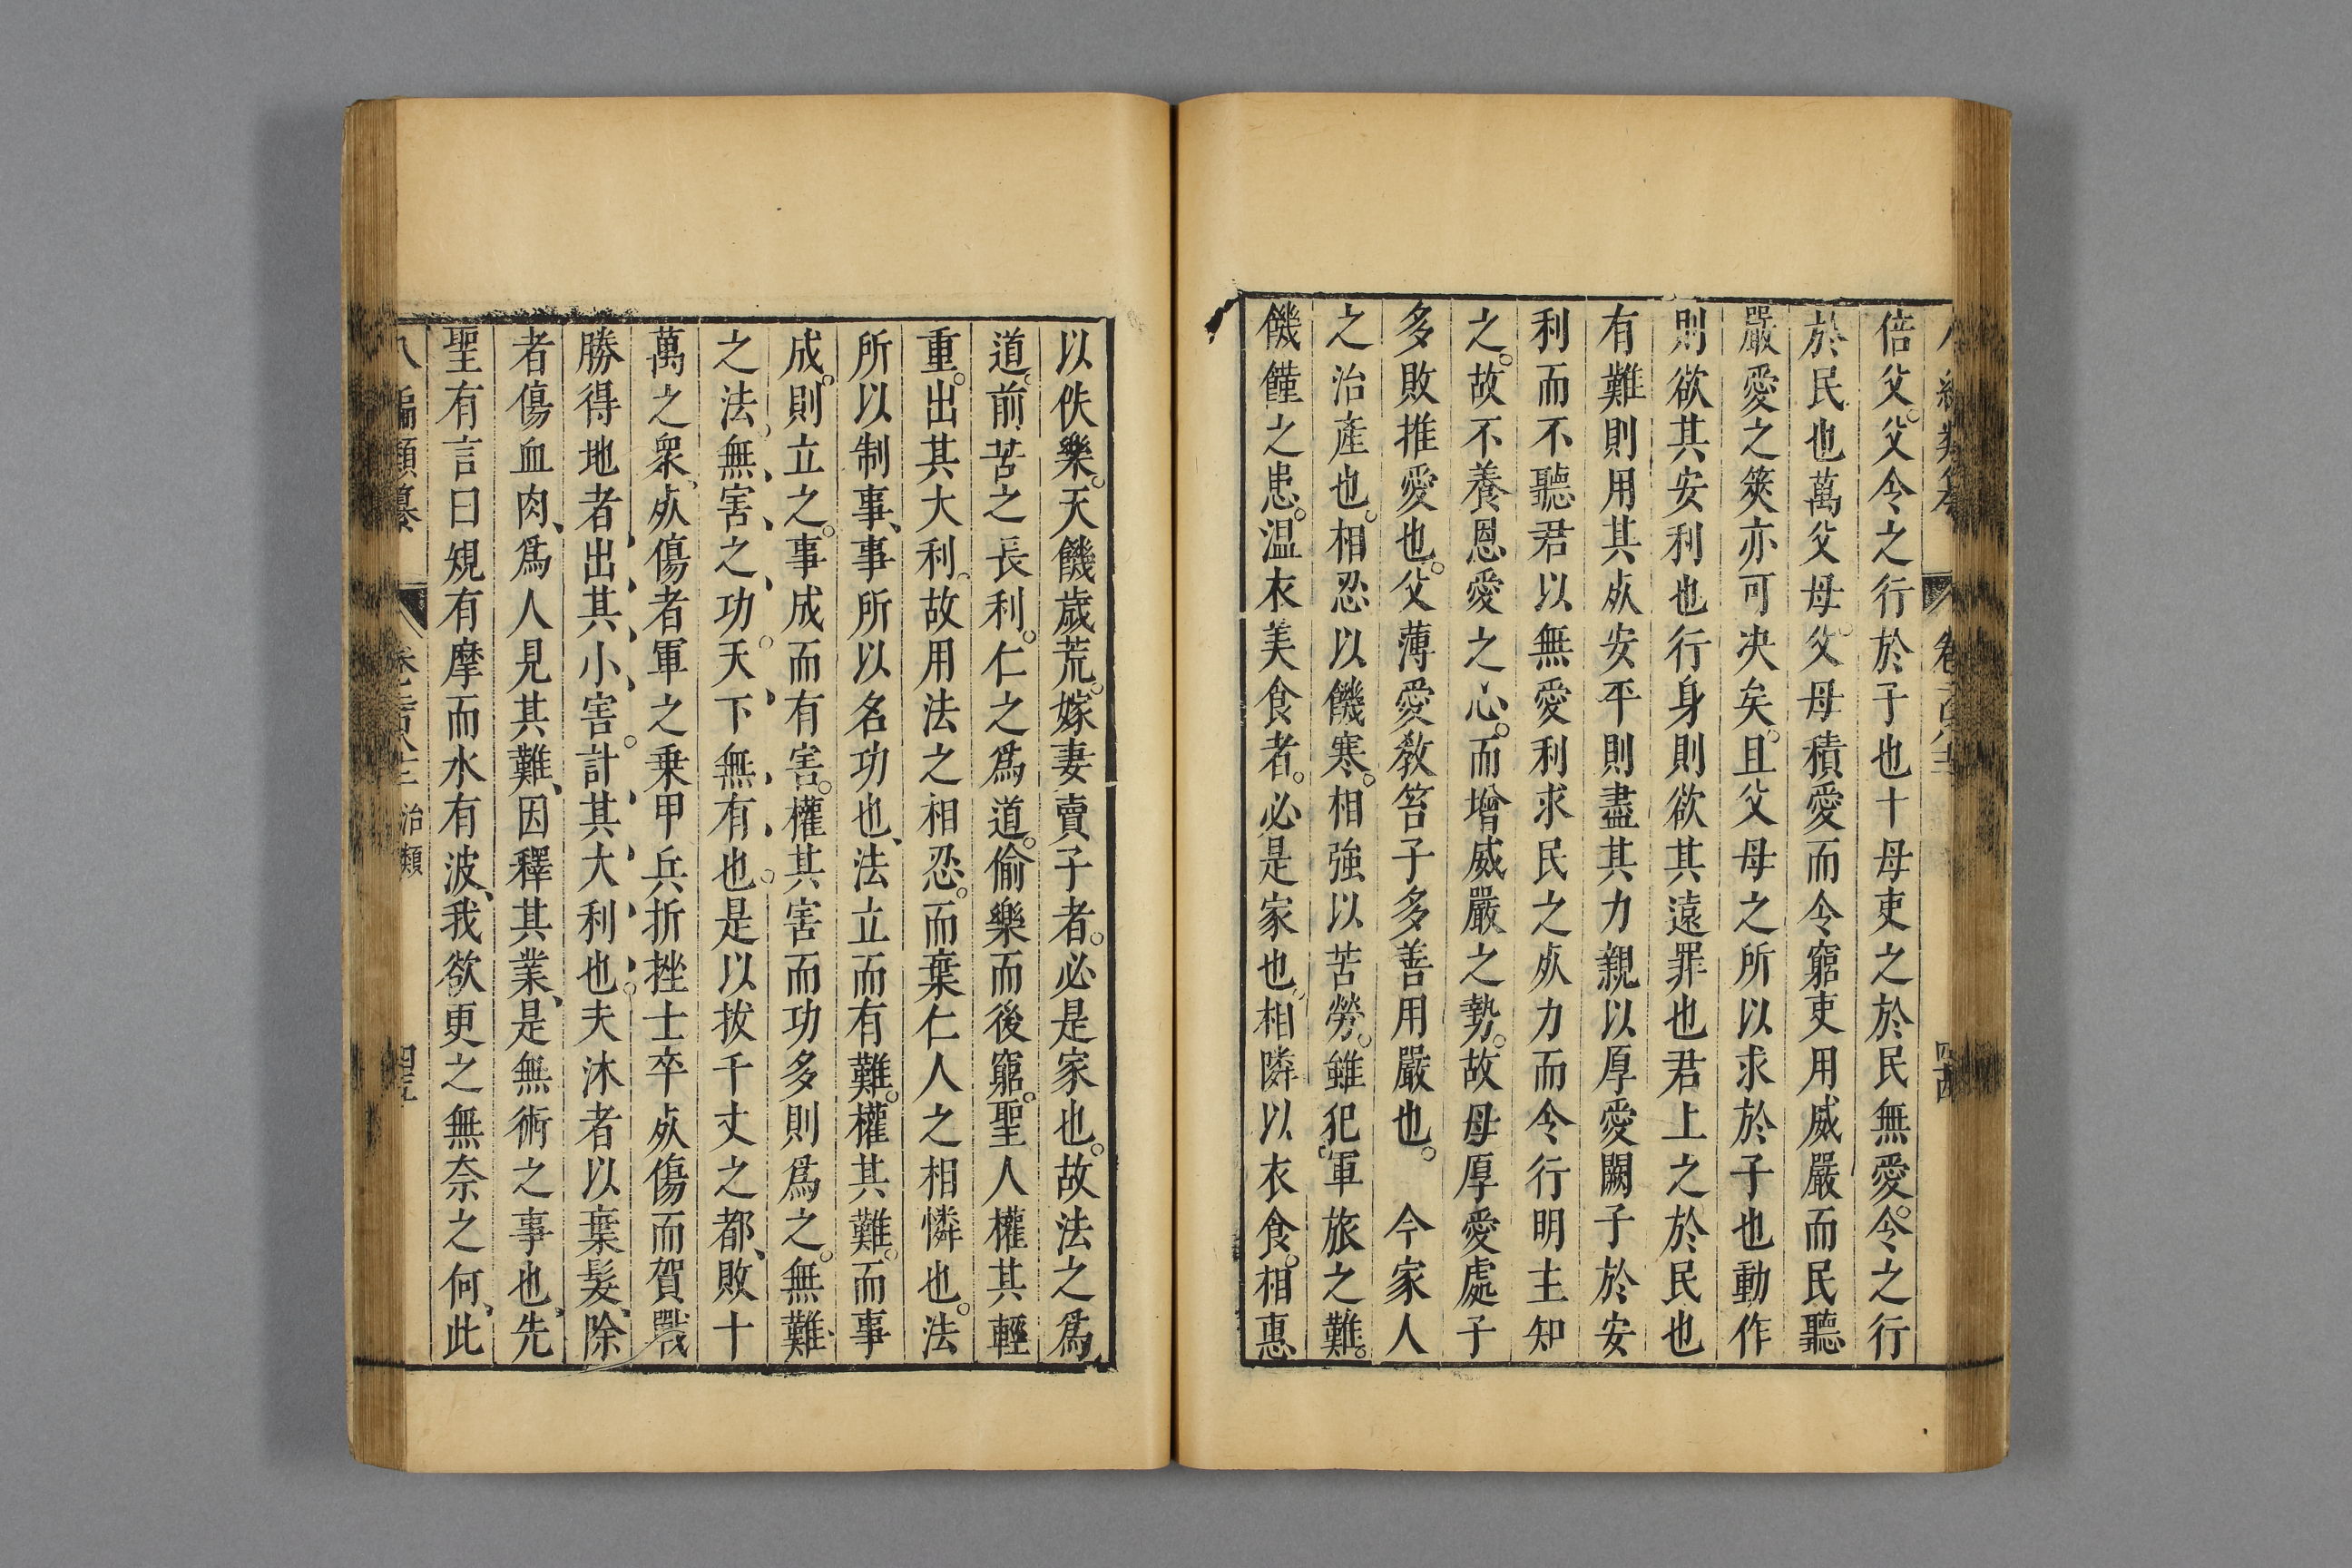 倍父父令之行於子也十母吏之於民無愛令之行
於民也萬父母父母積愛而令窮吏用威嚴而民聽
嚴愛之筴亦可决矣且父母之所以求於子也動作
則欲其安利也行身則欲其遠罪也君上之於民也
有難則用其㱙安平則盡其力親以厚愛關子於安
利而不聽君以無愛利求民之㱙力而令行明主知
之故不養恩愛之心而增威嚴之勢故母厚愛處子
多敗推愛也父薄愛教笞子多善用嚴也　今家人
之治產也相忍以饑寒相強以苦勞雖犯軍旅之難
饑饉之患温衣美食者必是家也相隣以衣食相惠
以佚樂天饑歲荒嫁妻賣子者必是家也故法之爲
道前苦之長利仁之爲道偷樂而後窮聖人權其輕
重出其大利故用法之相忍而棄仁人之相憐也法
所以制事事所以名功也法立而有難權其難而事
成則立之事成而有害權其害而功多則爲之無難
之法無害之功天下無有也是以拔千丈之都敗十
萬之衆㱙傷者軍之乗甲兵折挫士卒㱙傷而賀戰
勝得地者出其小害計其大利也夫沐者以棄髮除
者傷血肉爲人見其難因釋其業是無術之事也先
聖有言曰規有摩而水有波我欲更之無奈之何此
編類纂　治類